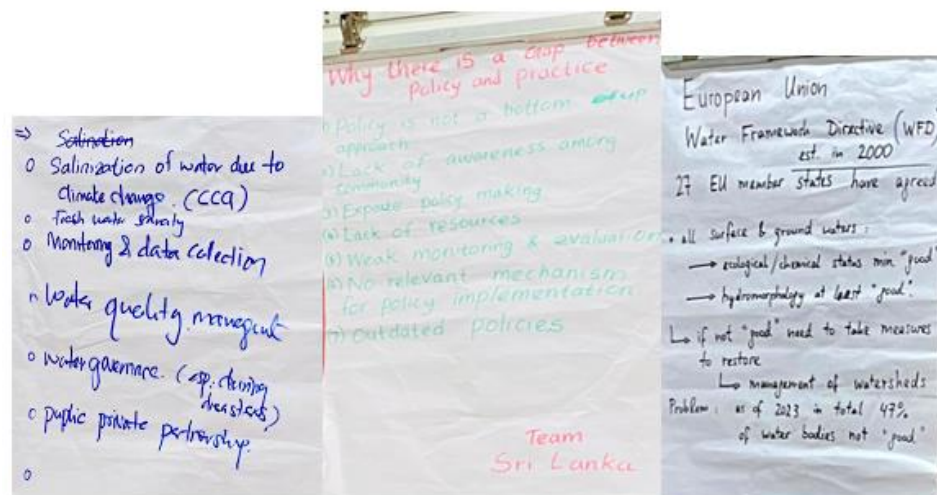 ⇒ Salination
o Salinization of water due to
climate change. (CCA)
o Fresh water scarcity
o Monitoring & data collection
o Water quality managent
o water governance. (esp: during
disasters)
o public private partnership.
o
Why there is a Gap between
Policy and practice
1) Policy is not a bottom up
approach
2) Lack of awareness among
community
3) policy making
4) Lack of resources
5) Weak monitoring & evaluation
6) No relevant mechanism
for policy implementation
7) Outdated policies
Team
Sri Lanka
European Union
Water Framework Directive (WFD)
est. in 2000
27 EU member states have agreed
• all surface & ground waters:
→ ecological/chemical status min. "good"
→ hydromorphology at least "good".
↳ if not "good" need to take measures
to restore
↳ management of watersheds
Problem: as of 2023 in total 47%
of water bodies not "good"